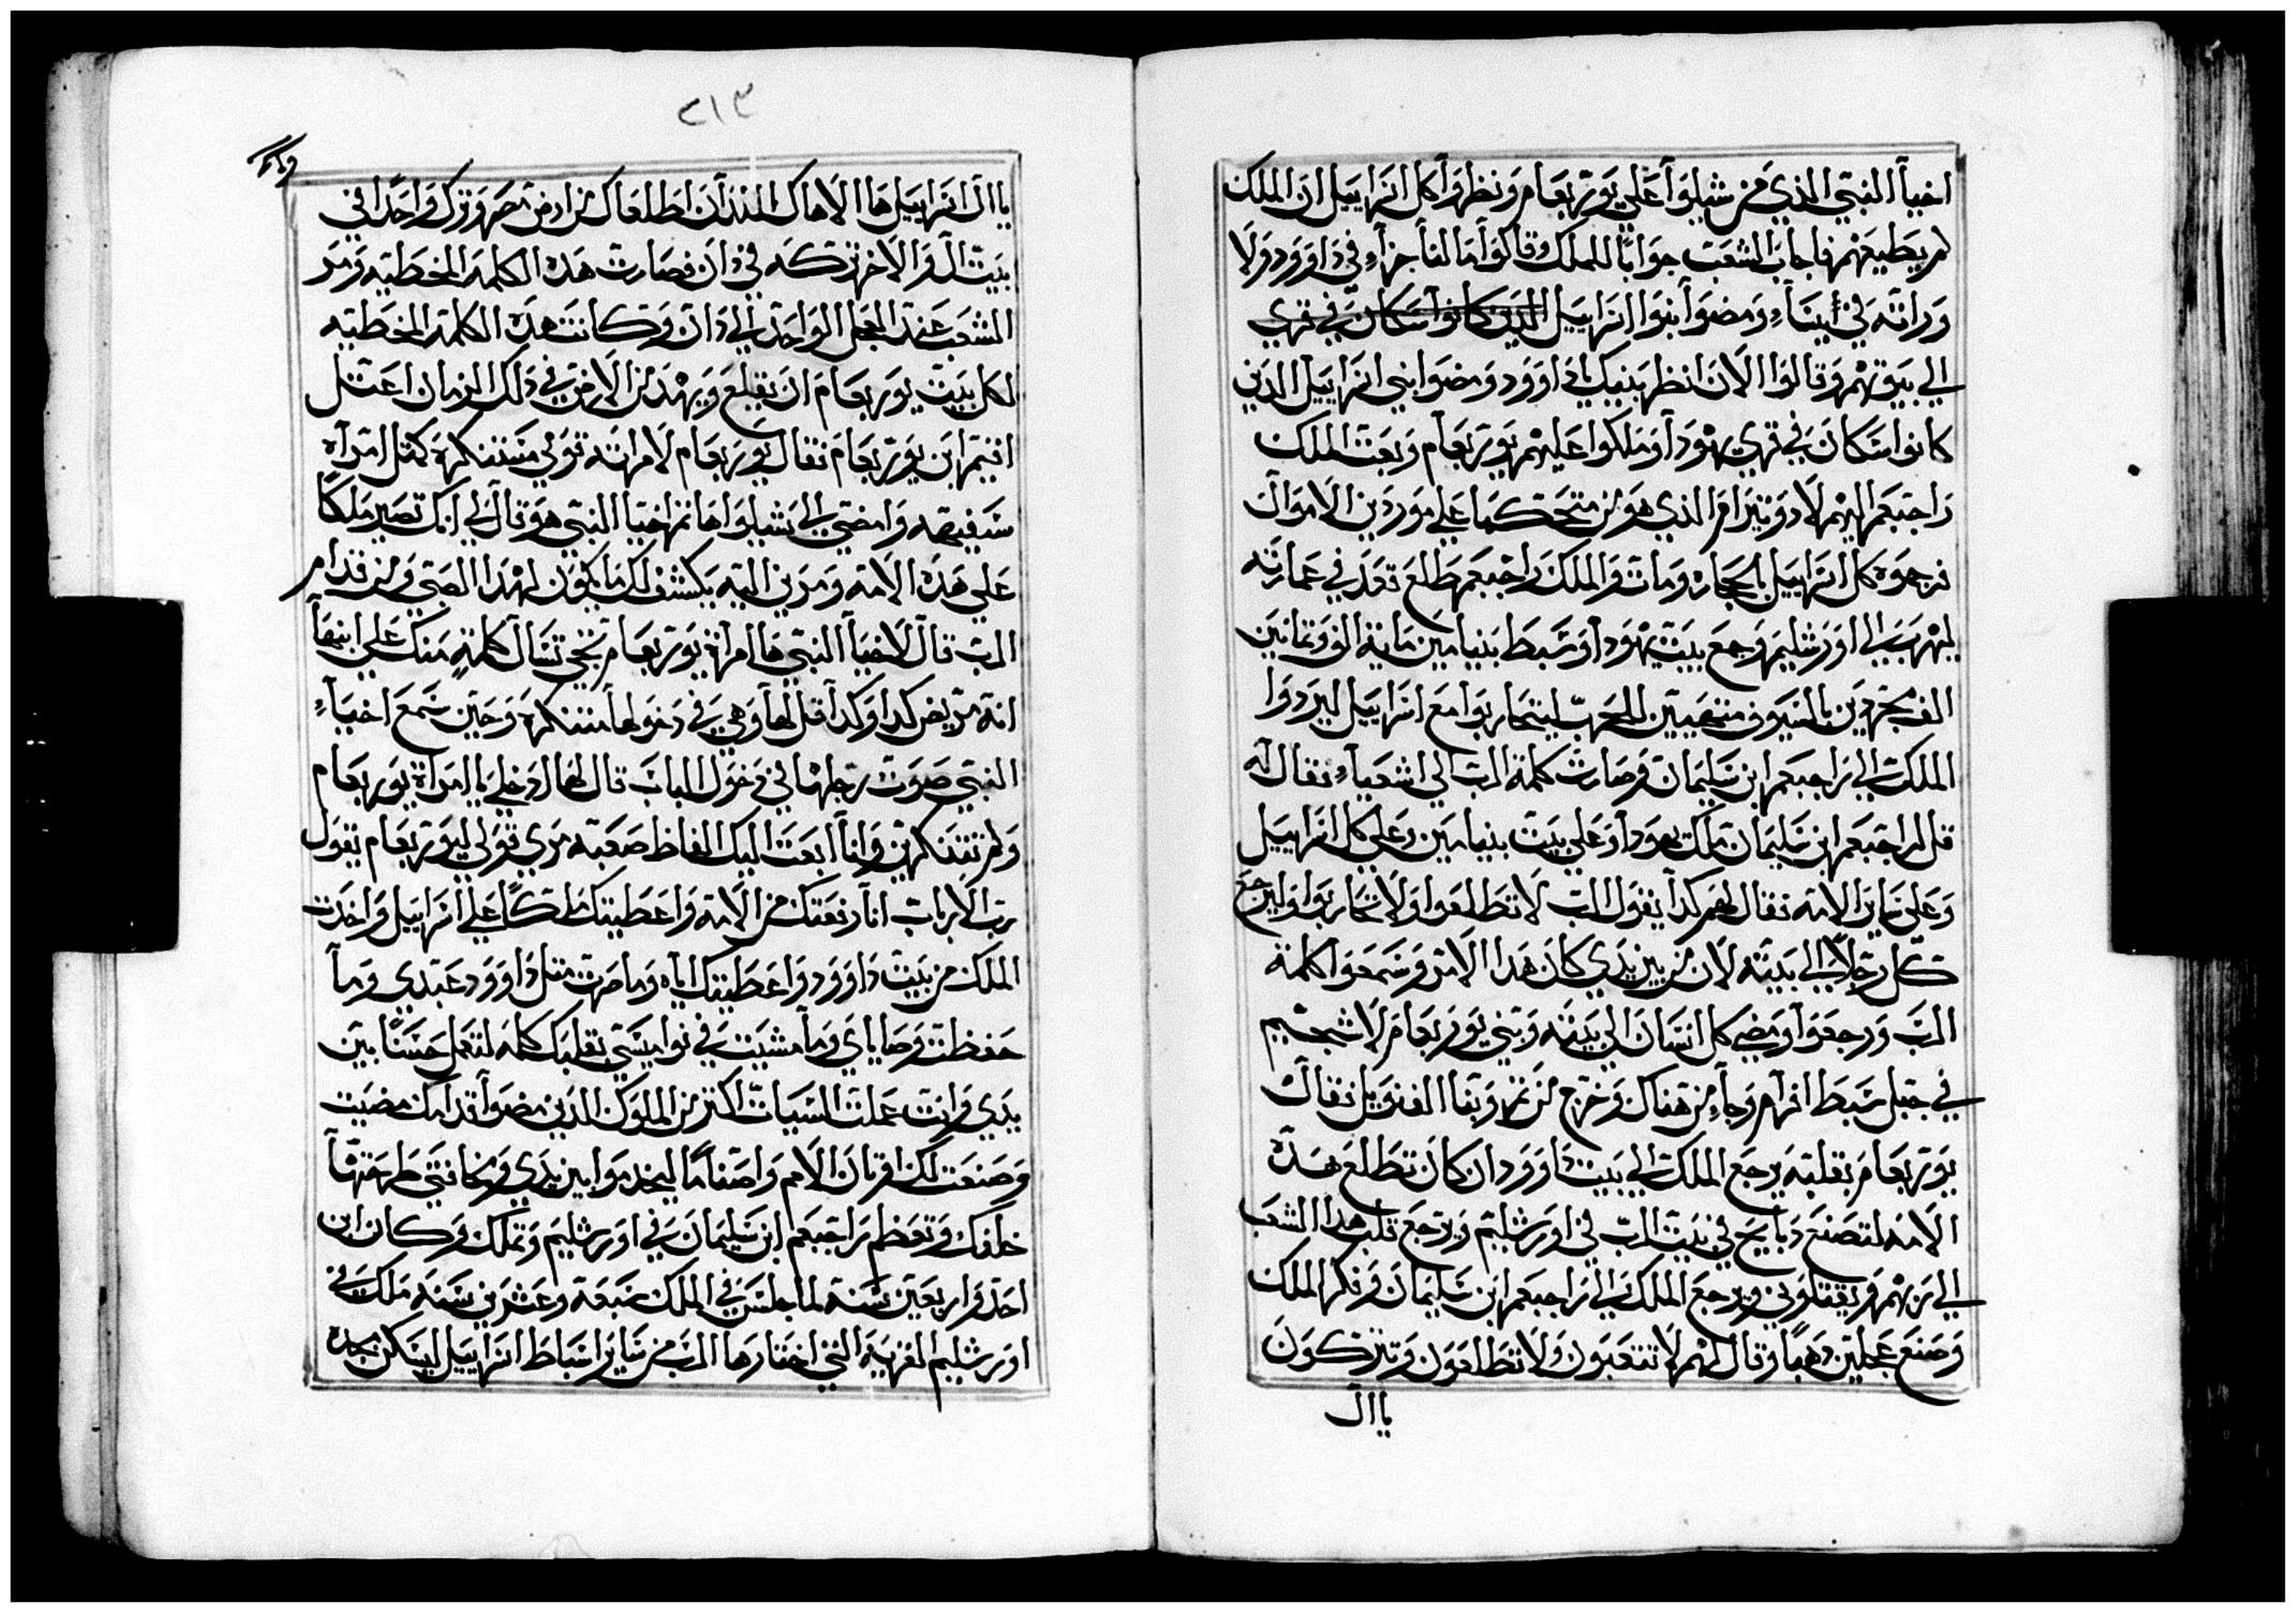 اخيأ النبي الذي من شيلوا علي يوربعام ونظروا كل اسراييل ان الملك
لم يطيعهم فاجاب الشعب جوابا للملك وقالوا ما لنا جزاء في داوود ولا
وراثه في ايساء ومضوا بنوا اسراييل الدين كانوا سكان في قري
الي بيوتهم وقالوا الان انظر بنيك ياداوود ومضوا بني اسراييل الدين
كانوا سكان في قري يهودا وملكوا عليهم يوربعام وبعت الملك
راجبعم اليهم لادونيرام الذي هو من متحكما علي موردين الاموال
فرجموه كل اسراييل بالحجاره ومات والملك راجبعم طلع قعد في عمارته
ليهرب الي اورشليم وجمع بيت يهودا وسبط بنيامين ماية الف وتمانين
الف مجردين بالسيوف منتخبين للحرب ليتحاربوا مع اسراييل ليردوا
الملك الي راجبعم ابن سليمان وصارت كلمة الرب الي اشعياء فقال له
قل لراجبعم ابن سليمان ملك يهودا وعلي بيت بنيامين وعلي كل اسراييل
وعلي ساير الامه فقال لهم كدا يقول الرب لا تطلعوا ولا تحاربوا وليرجع
كل رجلا الي بيته لان من بين يدي كان هدا الامر وسمعوا كلمة
الرب ورجعوا ومضي كل انسان الي بيته وبني يوربعام لاشجيم
في جبل سبط افرام وجاء من هناك وخرج من تم وبنا الفنويل فقال
يوربعام بقلبه يرجع الملك الي بيت داوود ان كان تطلع هده
الامه لتصنع دبايح في بيت الرب في اورشليم ويرجع قلب هدا الشعب
الي ربهم ويقتلوني ويرجع الملك الي راجبعم ابن سليمان وفكر الملك
وصنع عجلين دهبا وقال لهم لا تتعبون ولا تطلعون وتتركون
ياال
٢١٣
ياال اسراييل ها الاهاك اللدان اطلعاك من ارض مصر وترك واحدا في
بيت ال والاخر تركه في دان فصارت هده الكلمه الخطيه ومر
الشعب عند العجل الواحد الي دان وكانت هده الكلمة الخطيه
لكل بيت يوربعام ان يقلع ويهد من الارض في دلك الزمان اعتل
ابيم ابن يوربعام فقال يوربعام لامراته قومي متنكره كمتل امراه
سفيهه وامضي الي شيلوا هاتم اخيا النبي هو قال لي انك تصير ملكا
علي هده الامه ومري اليه يكشف لك ما يكون لهدا الصبي ومن قدام
الرب قال لاخيأ النبي ها امراة يوربعام تجي تسال كلمة منك علي ابنها
انه مريض كدا وكدا قل لها وهي في دخولها متنكره وحين سمع اخياء
النبي صوت رجلها في دخول الباب قال لها ادخلي ياامراة يوربعام
ولم تتنكرين وانا ابعت اليك الفاظ صعبه مري قولي ليوربعام يقول
رب الارباب انا رفعتك من الامه واعطيتك ملكا علي اسراييل واخدت
الملك من بيت داوود واعطيتك اياه وما صرت متل داوود عبدي وما
حفظت وصاياي وما مشيت في نواميسي بقلبك كله لتعمل حسنا بين
يدي وانت عملت السيات اكتر من الملوك الدين مضوا قدامك مضيت
وصنعت لك قربان الامم واصناما ليخدموا بين يدي ومكانتي طرحتها
خلفك وتعظم راجبعم ابن سليمان في اورشليم وتملك وكان ابن
احد واربعين سنة لما جلس في الملك سبعة وعشرين سنه ملك في
اورشليم القريه التي اختارها الرب من ساير اسباط اسراييل ليسكن مجده